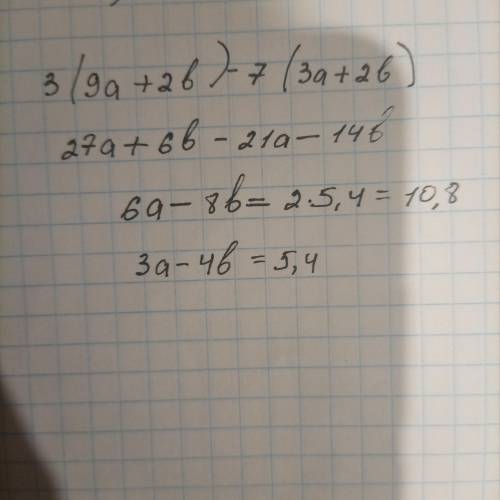 3(9a+2b)-7(3a+2b)
27a+6b-21a-14b
6a-8b=2·5,4=10,8
3a-4b=5,4